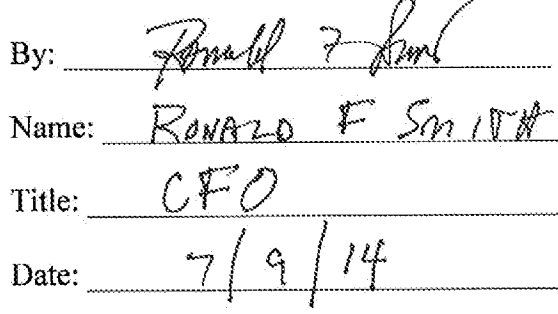 By: Ronald F Smith
Name: RONALD F SMITH
Title: CFO
Date: 7/9/14